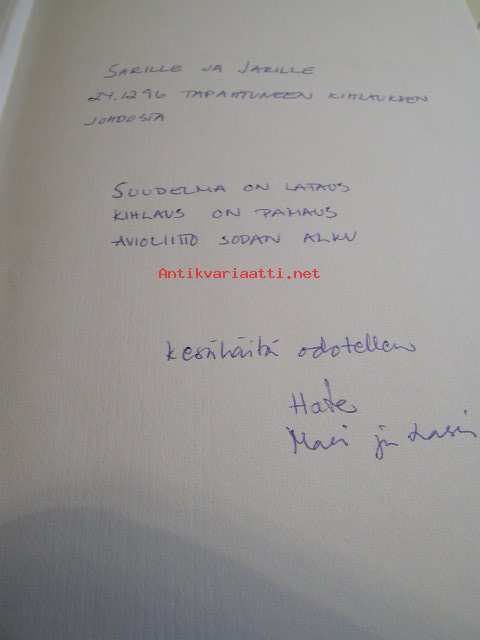 SARILLE JA JARILLE
24.12.96 TAPAHTUNEEN KIHLAUKSEN
JOHDOSTA
SUUDELMA ON LATAUS
KIHLAUS ON PAMAUS
AVIOLIITTO SODAN ALKU
Antikvariaatti.net
kesähäitä odotellen
ja